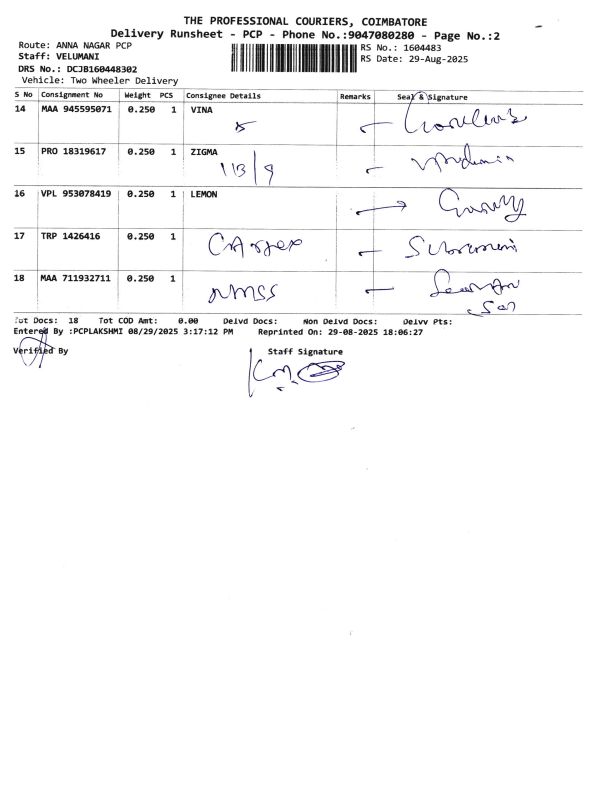 THE PROFESSIONAL COURIERS, COIMBATORE
Delivery Runsheet - PCP - Phone No.:9047080280 - Page No.:2
Route: ANNA NAGAR PCP RS No.: 1604483
Staff: VELUMANI RS Date: 29-Aug-2025
DRS No.: DCJB160448302
Vehicle: Two Wheeler Delivery
S No Consignment No Weight PCS Consignee Details Remarks Seal & Signature
14 MAA 945595071 0.250 1 VINA
15 PRO 18319617 0.250 1 ZIGMA
113/9
16 VPL 953078419 0.250 1 LEMON
17 TRP 1426416 0.250 1
18 MAA 711932711 0.250 1
NMSS
Tot Docs: 18 Tot COD Amt: 0.00 Delvd Docs: Non Delvd Docs: Delvv Pts:
Entered By :PCPLAKSHMI 08/29/2025 3:17:12 PM Reprinted On: 29-08-2025 18:06:27
Verified By Staff Signature